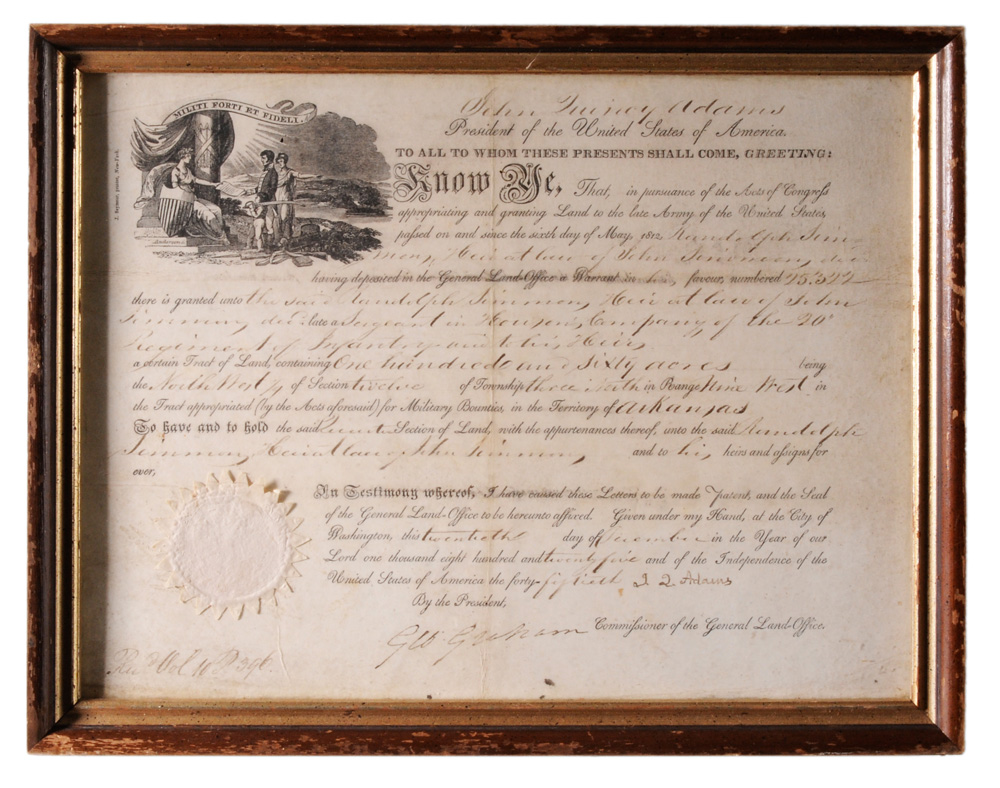 MILITI FORTI ET FIDELI.
John Quincy Adams
President of the United States of America.
TO ALL TO WHOM THESE PRESENTS SHALL COME, GREETING:
Know Ye, That, in pursuance of the Acts of Congress
appropriating and granting Land to the late Army of the United States,
passed on and since the sixth day of May, 1812, Randolph Sim
mons, Heir at law of John Simmons, dec
having deposited in the General Land-Office a Warrant in his favour, numbered
there is granted unto the said Randolph Simmons, Heir at law of John
Simmons, dec: late a Sergeant in Company of the 20
Regiment of Infantry and to his Heirs
a certain Tract of Land, containing One hundred and sixty acres being
the North West of Section twelve of Township three South in Range Nine West in
the Tract appropriated (by the Acts aforesaid) for Military Bounties, in the Territory of Arkansas
To have and to hold the said quarter Section of Land, with the appurtenances thereof, unto the said Randolph
Simmons, Heir at law of John Simmons, and to his heirs and assigns for
ever,
In Testimony whereof, I have caused these Letters to be made Patent, and the Seal
of the General Land-Office to be hereunto affixed. Given under my Hand, at the City of
Washington, this twentieth day of December in the Year of our
Lord one thousand eight hundred and twenty five and of the Independence of the
United States of America the forty-fiftieth J. Q. Adams
By the President,
Geo Graham Commissioner of the General Land-Office.
Rec Vol 10 P 396.